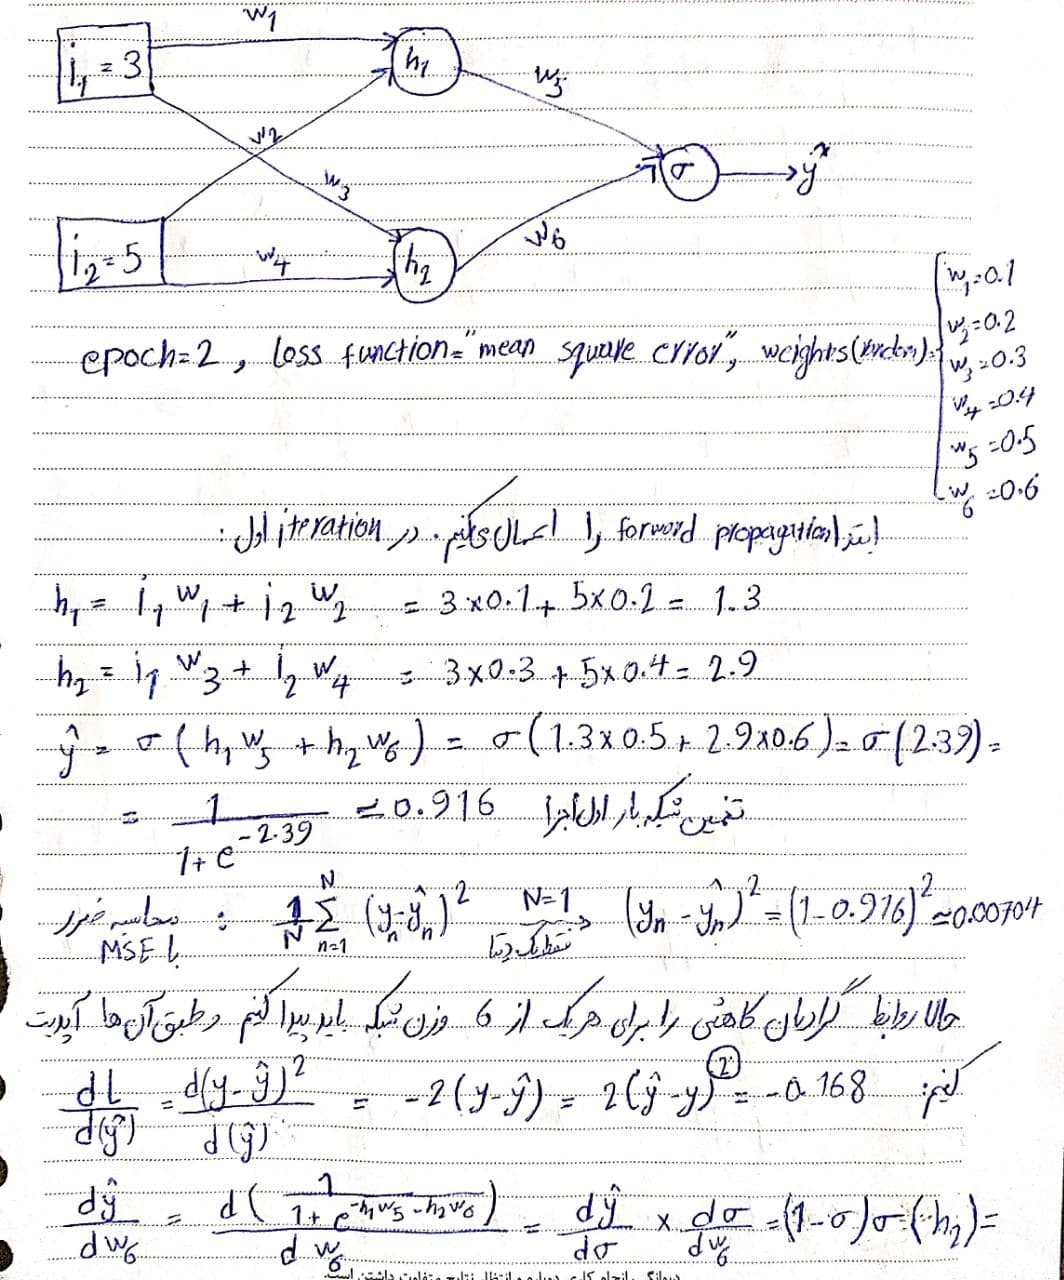 w₁
i₁ = 3
h₁
w₅
w₂
w₃
σ
ŷ
i₂ = 5
w₄
h₂
w₆
epoch=2 , loss function="mean square error", weights(random)=
w₁=0.1
w₂=0.2
w₃=0.3
w₄=0.4
w₅=0.5
w₆=0.6
ابتدا forward propagation را اعمال میکنیم. در iteration اول :
h₁ = i₁ w₁ + i₂ w₂ = 3×0.1 + 5×0.2 = 1.3
h₂ = i₁ w₃ + i₂ w₄ = 3×0.3 + 5×0.4 = 2.9
ŷ = σ(h₁ w₅ + h₂ w₆) = σ(1.3×0.5 + 2.9×0.6) = σ(2.39) =
= 1/(1+e^(-2.39)) ≃ 0.916 تخمین شبکه بار اول اجرا
محاسبه ضرر با MSE : 1/N Σ_{n=1}^{N} (yₙ-ŷₙ)² N=1 فقط یک دیتا → (yₙ-ŷₙ)² = (1-0.916)² ≃ 0.00704
حالا روابط گرادیان کاهشی را برای هر یک از 6 وزن شبکه باید پیدا کنیم و طبق آن ها آپدیت
کنیم: dL/d(ŷ) = d(y-ŷ)²/d(ŷ) = -2(y-ŷ) = 2(ŷ-y) ② = -0.168
dŷ/dw₆ = d(1/(1+e^(-h₁w₅-h₂w₆)))/dw₆ = dŷ/dσ × dσ/dw₆ = (1-σ)σ(h₂) =
دیوانگی، انجام کاری دوباره و انتظار نتایج متفاوت داشتن است